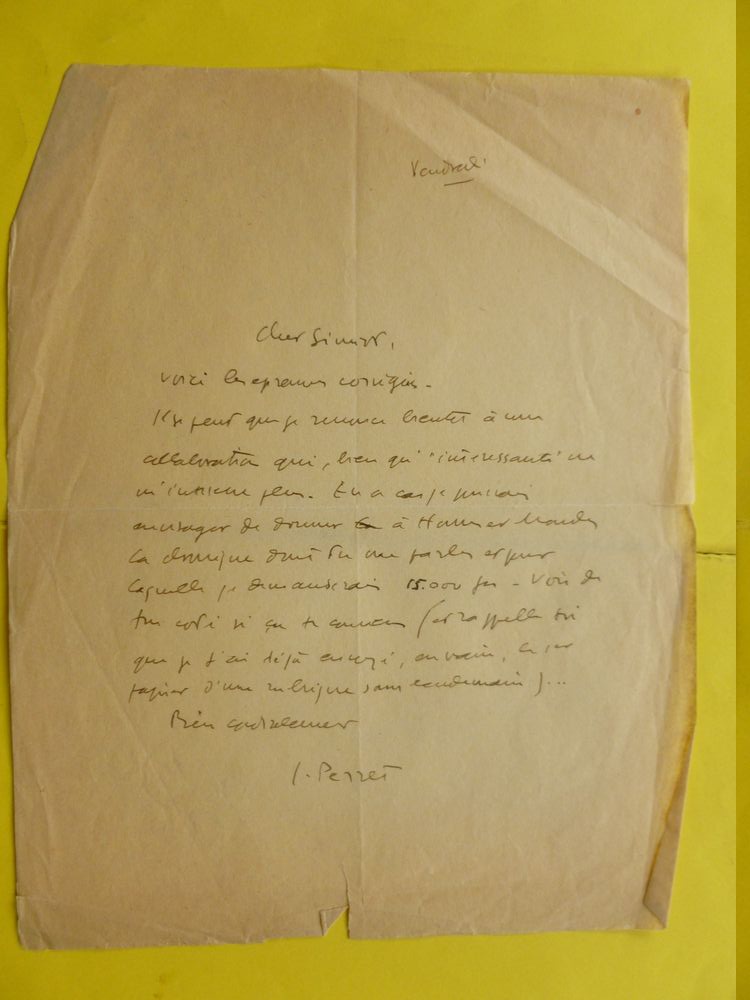 Vendredi
Cher Simiot,
voici les épreuves corrigées.
Il se peut que je renonce bientôt à une
collaboration qui, bien qu'intéressante ne
m'intéresse plus. En ce cas je pourrais
envisager de donner à Hommes et Mondes
la chronique dont tu me parles et pour
laquelle je demanderais 15.000 frs - Vois de
ton coté si ça te convient (et rappelle toi
que je t'ai déjà envoyé, en vain, le 1er
papier d'une rubrique sans lendemain)...
Bien cordialement
J. Perret